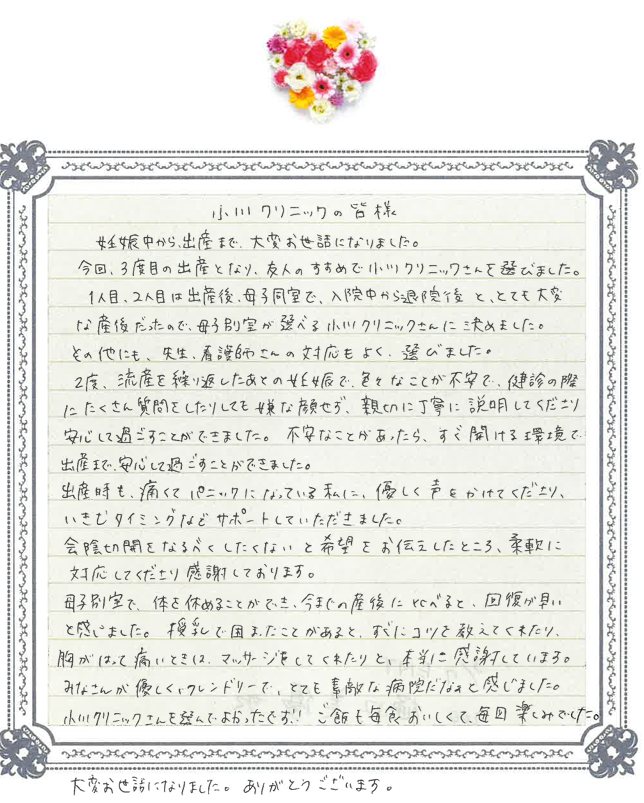 小川クリニックの皆様
妊娠中から、出産まで、大変お世話になりました。
今回、3度目の出産となり、友人のすすめで小川クリニックさんを選びました。
1人目、2人目は出産後、母子同室で、入院中から退院後と、とても大変
な産後だったので、母子別室が選べる小川クリニックさんに決めました。
その他にも、先生、看護師さんの対応もよく、選びました。
2度、流産を繰り返したあとの妊娠で、色々なことが不安で、健診の際
にたくさん質問をしたりしても嫌な顔せず、親切に丁寧に説明してくださり
安心して過ごすことができました。不安なことがあったら、すぐ聞ける環境で
出産まで、安心して過ごすことができました。
出産時も、痛くてパニックになっている私に、優しく声をかけてくださり、
いきむタイミングなどサポートしていただきました。
会陰切開をなるべくしたくないと希望をお伝えしたところ、柔軟に
対応してくださり感謝しております。
母子別室で、体を休めることができ、今までの産後に比べると、回復が早い
と感じました。授乳で困ったことがあると、すぐにコツを教えてくれたり、
胸がはって痛いときは、マッサージをしてくれたりと、本当に感謝しています。
みなさんが優しく、フレンドリーで、とても素敵な病院だなぁと感じました。
小川クリニックさんを選んでよかったです!!ご飯も毎食おいしくて、毎回楽しみでした。
大変お世話になりました。ありがとうございます。